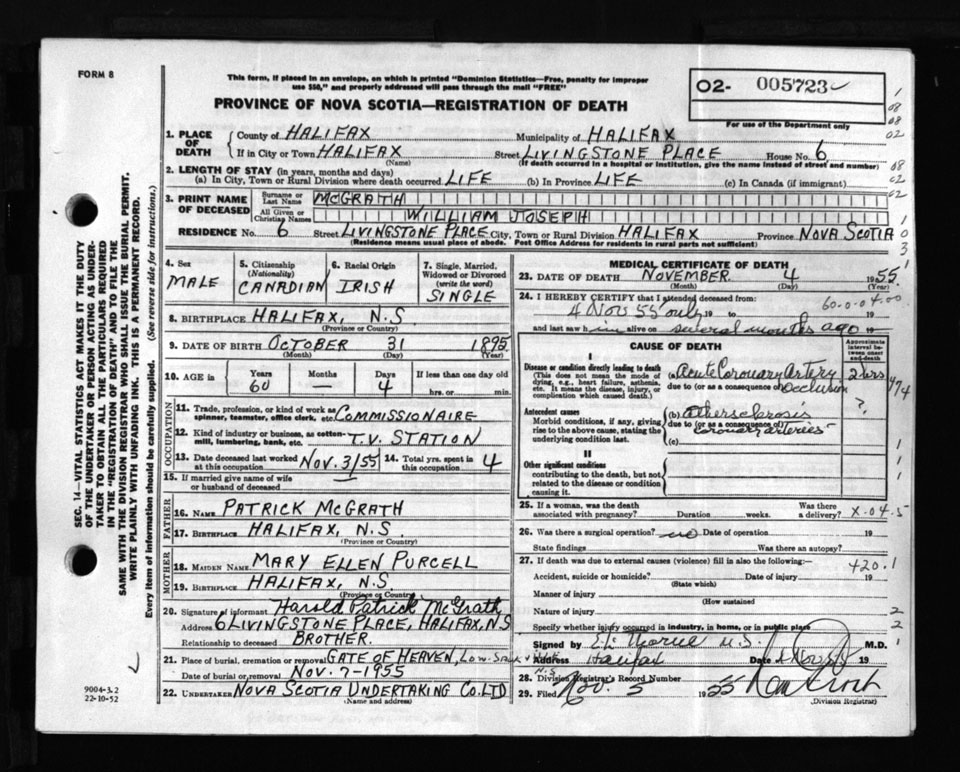 FORM 8
This form, if placed in an envelope, on which is printed "Dominion Statistics—Free, penalty for improper
use $50," and properly addressed will pass through the mail "FREE"
02- 005723
For use of the Department only
PROVINCE OF NOVA SCOTIA—REGISTRATION OF DEATH
1. PLACE OF DEATH
County of HALIFAX Municipality of HALIFAX
If in City or Town HALIFAX Street LIVINGSTONE PLACE House No. 6
(Name) (If death occurred in a hospital or institution, give the name instead of street and number)
2. LENGTH OF STAY (in years, months and days)
(a) In City, Town or Rural Division where death occurred LIFE (b) In Province LIFE (c) In Canada (if immigrant)
3. PRINT NAME OF DECEASED
Surname or Last Name MCGRATH
All Given or Christian Names WILLIAM JOSEPH
RESIDENCE No. 6 Street LIVINGSTONE PLACE City, Town or Rural Division HALIFAX Province NOVA SCOTIA
(Residence means usual place of abode. Post Office Address for residents in rural parts not sufficient)
4. Sex MALE
5. Citizenship (Nationality) CANADIAN
6. Racial Origin IRISH
7. Single, Married, Widowed or Divorced (write the word) SINGLE
8. BIRTHPLACE HALIFAX, N.S.
(Province or Country)
9. DATE OF BIRTH OCTOBER 31 1895
(Month) (Day) (Year)
10. AGE in Years 60 Months — Days 4 If less than one day
hrs. or min.
OCCUPATION
11. Trade, profession, or kind of work as spinner, teamster, office clerk, etc. COMMISSIONAIRE
12. Kind of industry or business, as cotton-mill, lumbering, bank, etc. T.V. STATION
13. Date deceased last worked at this occupation NOV. 3/55 14. Total yrs. spent in this occupation 4
15. If married give name of wife or husband of deceased
FATHER
16. NAME PATRICK MCGRATH
17. BIRTHPLACE HALIFAX, N.S
(Province or Country)
MOTHER
18. MAIDEN NAME MARY ELLEN PURCELL
19. BIRTHPLACE HALIFAX, N.S
(Province or Country)
20. Signature of informant Harold Patrick McGrath
Address 6 LIVINGSTONE PLACE, HALIFAX, N.S
Relationship to deceased BROTHER.
21. Place of burial, cremation or removal GATE OF HEAVEN, Low. Sackville
N.S
Date of burial or removal NOV. 7-1955
22. UNDERTAKER NOVA SCOTIA UNDERTAKING CO. LTD
(Name and address)
MEDICAL CERTIFICATE OF DEATH
23. DATE OF DEATH NOVEMBER 4 1955.
(Month) (Day) (Year)
24. I HEREBY CERTIFY that I attended deceased from: 60-0-04-00
4 Nov 55 only 19 to 19
and last saw him alive on several months ago
CAUSE OF DEATH
Approximate interval between onset and death
I
Disease or condition directly leading to death
(This does not mean the mode of dying, e.g., heart failure, asthenia, etc. It means the disease, injury, or complication which caused death.)
(a) Acute Coronary Artery 2 hrs
due to (or as a consequence of) Occlusion
474
Antecedent causes
Morbid conditions, if any, giving rise to the above cause, stating the underlying condition last.
(b) atherosclerosis ?
due to (or as a consequence of) coronary arteries
(c)
II
Other significant conditions
contributing to the death, but not related to the disease or condition causing it.
25. If a woman, was the death associated with pregnancy? Duration weeks. Was there a delivery? X-04-5
26. Was there a surgical operation? no Date of operation 19
State findings Was there an autopsy?
27. If death was due to external causes (violence) fill in also the following:— 420.1
Accident, suicide or homicide? Date of injury 19
(State which)
Manner of injury
(How sustained)
Nature of injury
Specify whether injury occurred in industry, in home, or in public place
Signed by M.D.
Address Halifax Date 19
28. Division Registrar's Record Number
29. Filed Nov. 5 1955
(Division Registrar)
SEC. 14—VITAL STATISTICS ACT MAKES IT THE DUTY
OF THE UNDERTAKER OR PERSON ACTING AS UNDER-
TAKER TO OBTAIN ALL THE PARTICULARS REQUIRED
IN THE "REGISTRATION OF DEATH" AND TO FILE THE
SAME WITH THE DIVISION REGISTRAR WHO SHALL ISSUE THE BURIAL PERMIT.
WRITE PLAINLY WITH UNFADING INK. THIS IS A PERMANENT RECORD.
Every item of information should be carefully supplied. (See reverse side for instructions.)
9004-3.2
22-10-52
1
08
08
02
08
02
02
1
0
3
1
1
1
1
1
2
2
1